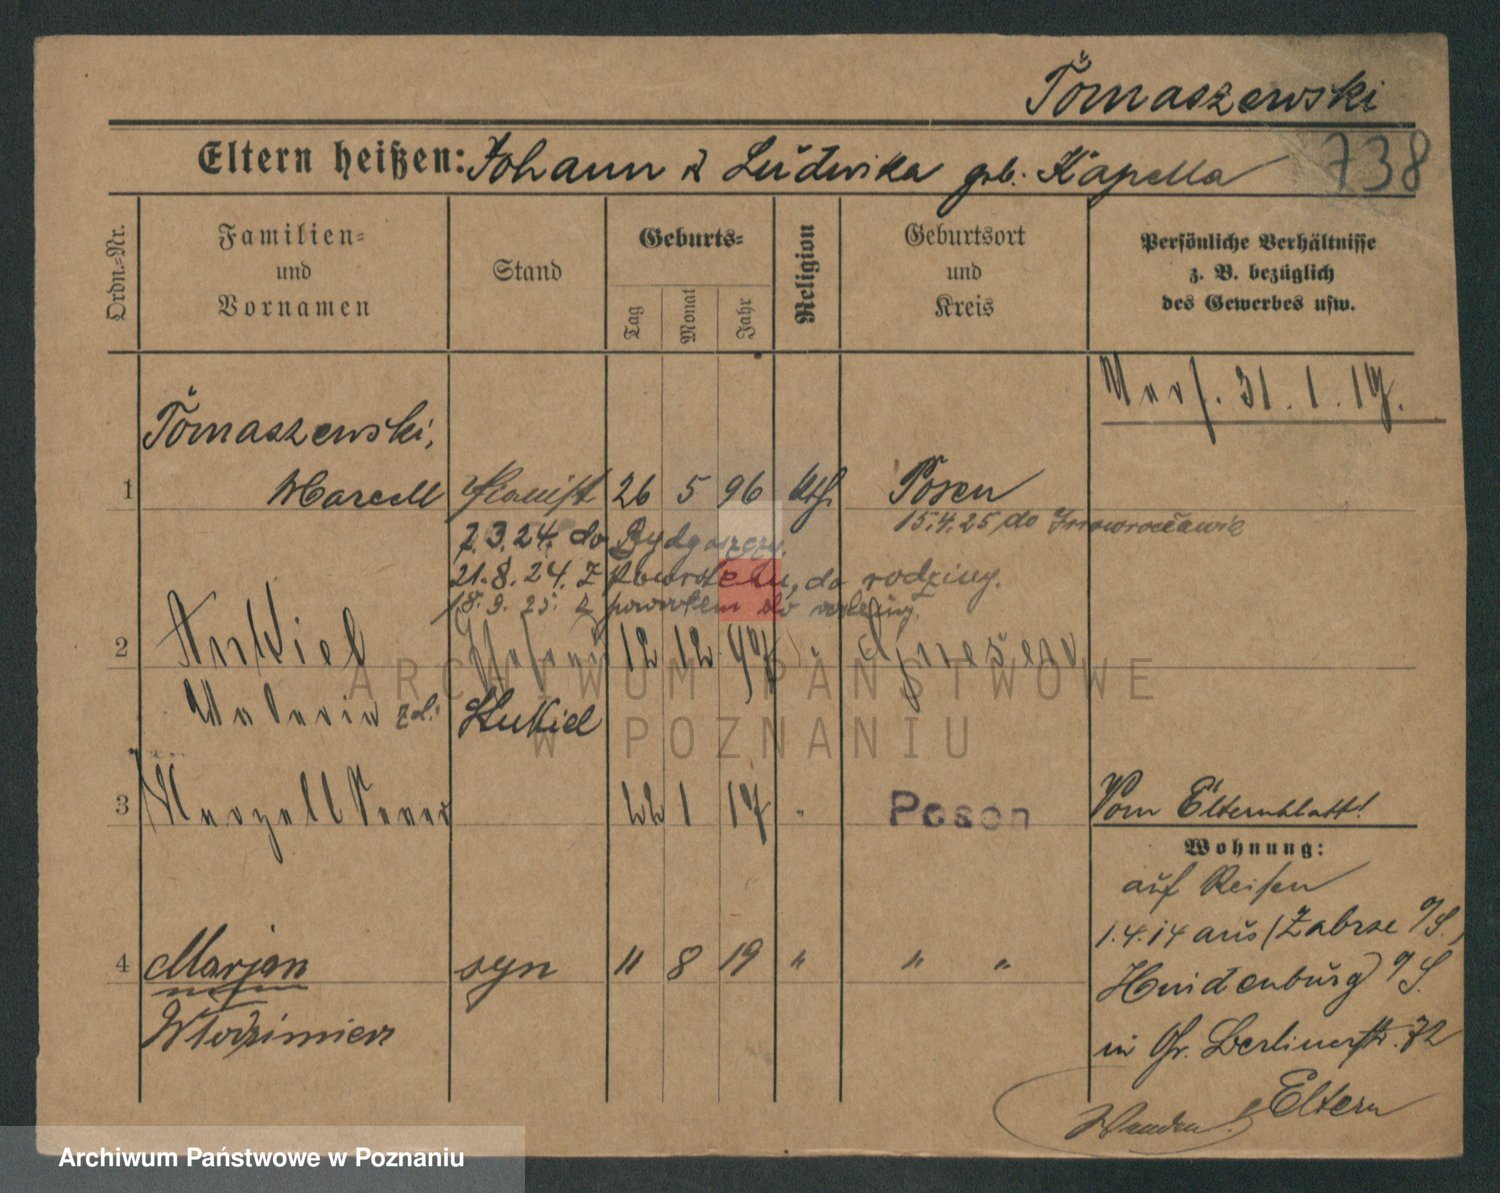 Tomaszewski
Eltern heißen: Johann & Ludwika geb. Kapella 738
Ordn.-Nr.
Familien- und Vornamen
Stand
Geburts-
Tag Monat Jahr
Religion
Geburtsort und Kreis
Persönliche Verhältnisse
z. B. bezüglich
des Gewerbes usw.
31.1.17.
Tomaszewski,
1 Marcell Pianist 26 5 96 kth Posen
15.4.25 do Inowrocławia
7.3.24. do Bydgoszczy.
21.8.24. z powrotem, do rodziny.
18.9.25. z powrotem do rodziny.
2 12 12 97 Gnesen
Valeria Stukiel
3 22 1 17 Posen
Vom Elternblatt!
Wohnung:
auf Reisen
1.4.14 aus (Zabrze O/S.,
Hindenburg O/S.
in Gr. Berlinerstr. 72
Eltern
4 Marjan syn " 8 19 " " "
Włodzimierz
Wenden!
ARCHIWUM PAŃSTWOWE
W POZNANIU
Archiwum Państwowe w Poznaniu